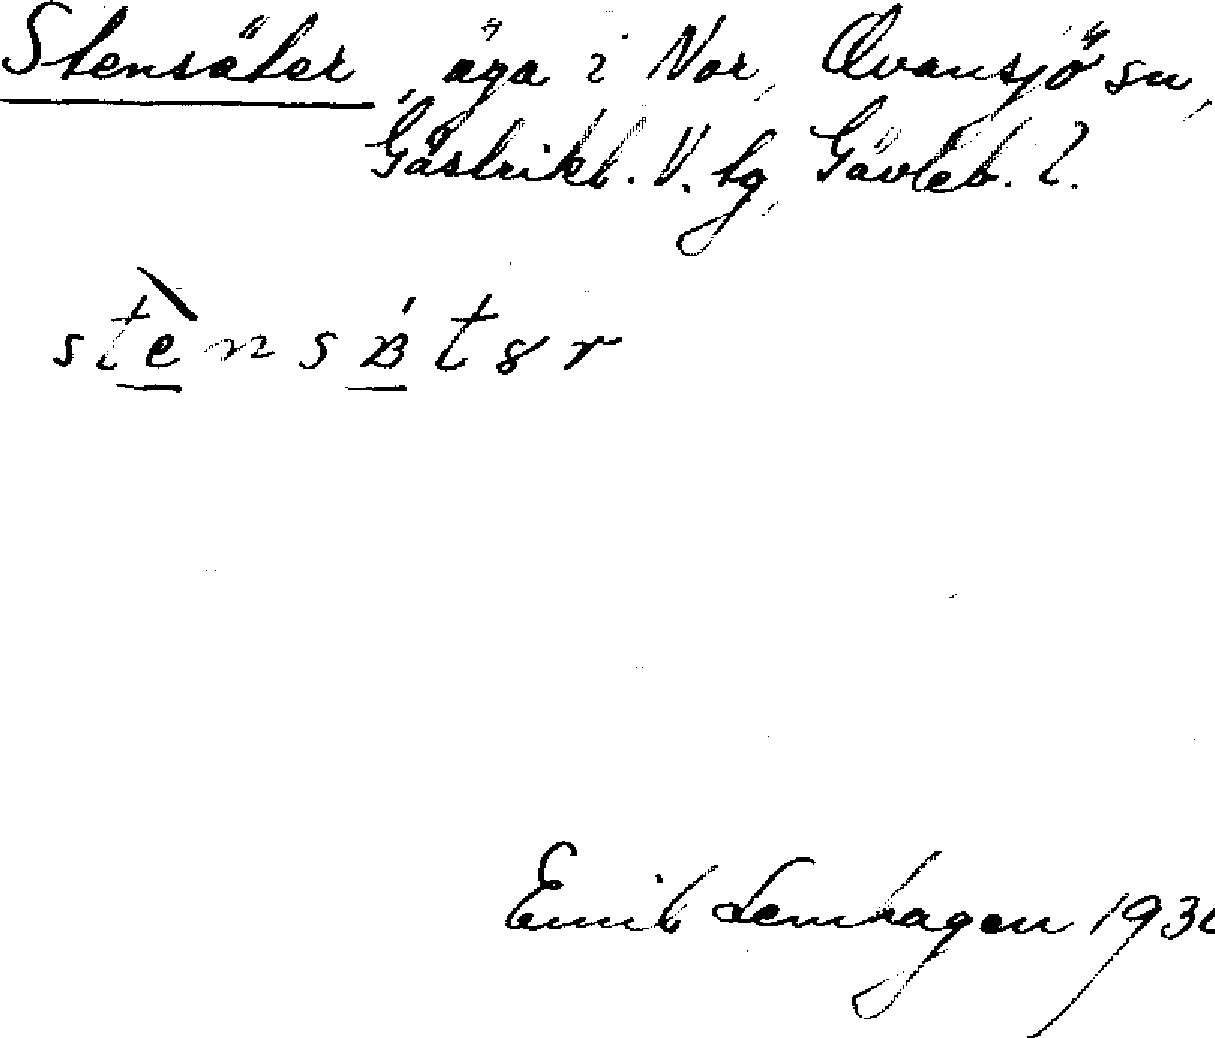 Stensäter, äga i Nor, Ovansjö sn,
Gästrikl. V. tg, Gävleb. l.
stènsätər
Emil Lemhagen 193